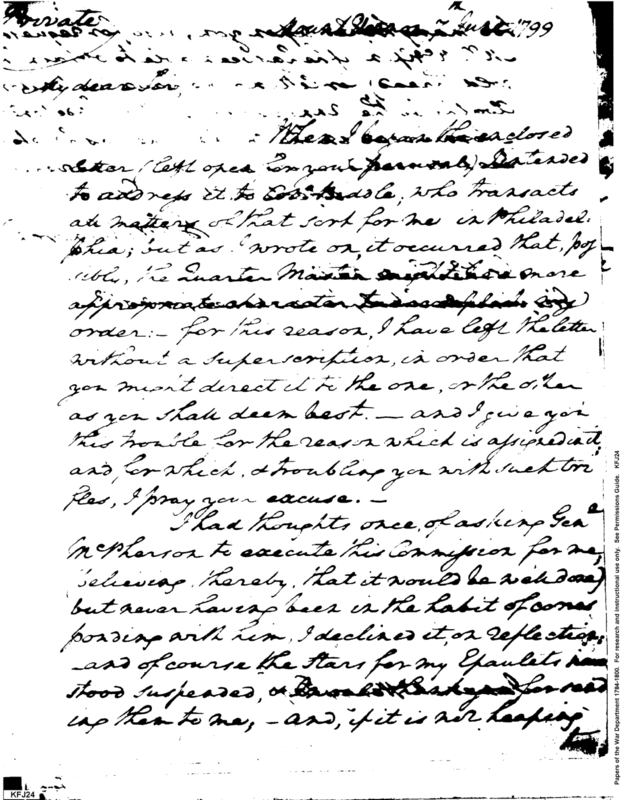 Private
Mount Vernon 1799
My dear Sir,
When I began the enclosed
letter (left open for your perusal) I intended
to address it to Colo. Biddle, who transacts
all matters of that sort for me in Philadel:
phia; but as I wrote on, it occurred that, pos
sibly, the Quarter Master might be a more
appropriate character to accomplish my
order:— for this reason, I have left the letter
without a superscription, in order that
you might direct it to the one, or the other
as you shall deem best.— and I give you
this trouble for the reason which is assigned in it
and, for which, & troubling you with such tri
fles, I pray your excuse.—
I had thoughts once, of asking Genl
McPherson to execute this Commission for me,
believing, thereby, that it would be well done)
but never having been in the habit of corres
ponding with him, I declined it, on reflection;
—and of course the Stars for my Epaulets have
stood suspended, & for send
ing them to me;— and, if it is not heaping
KFJ24
Papers of the War Department 1784-1800. For research and instructional use only. See Permissions Guide. KFJ24